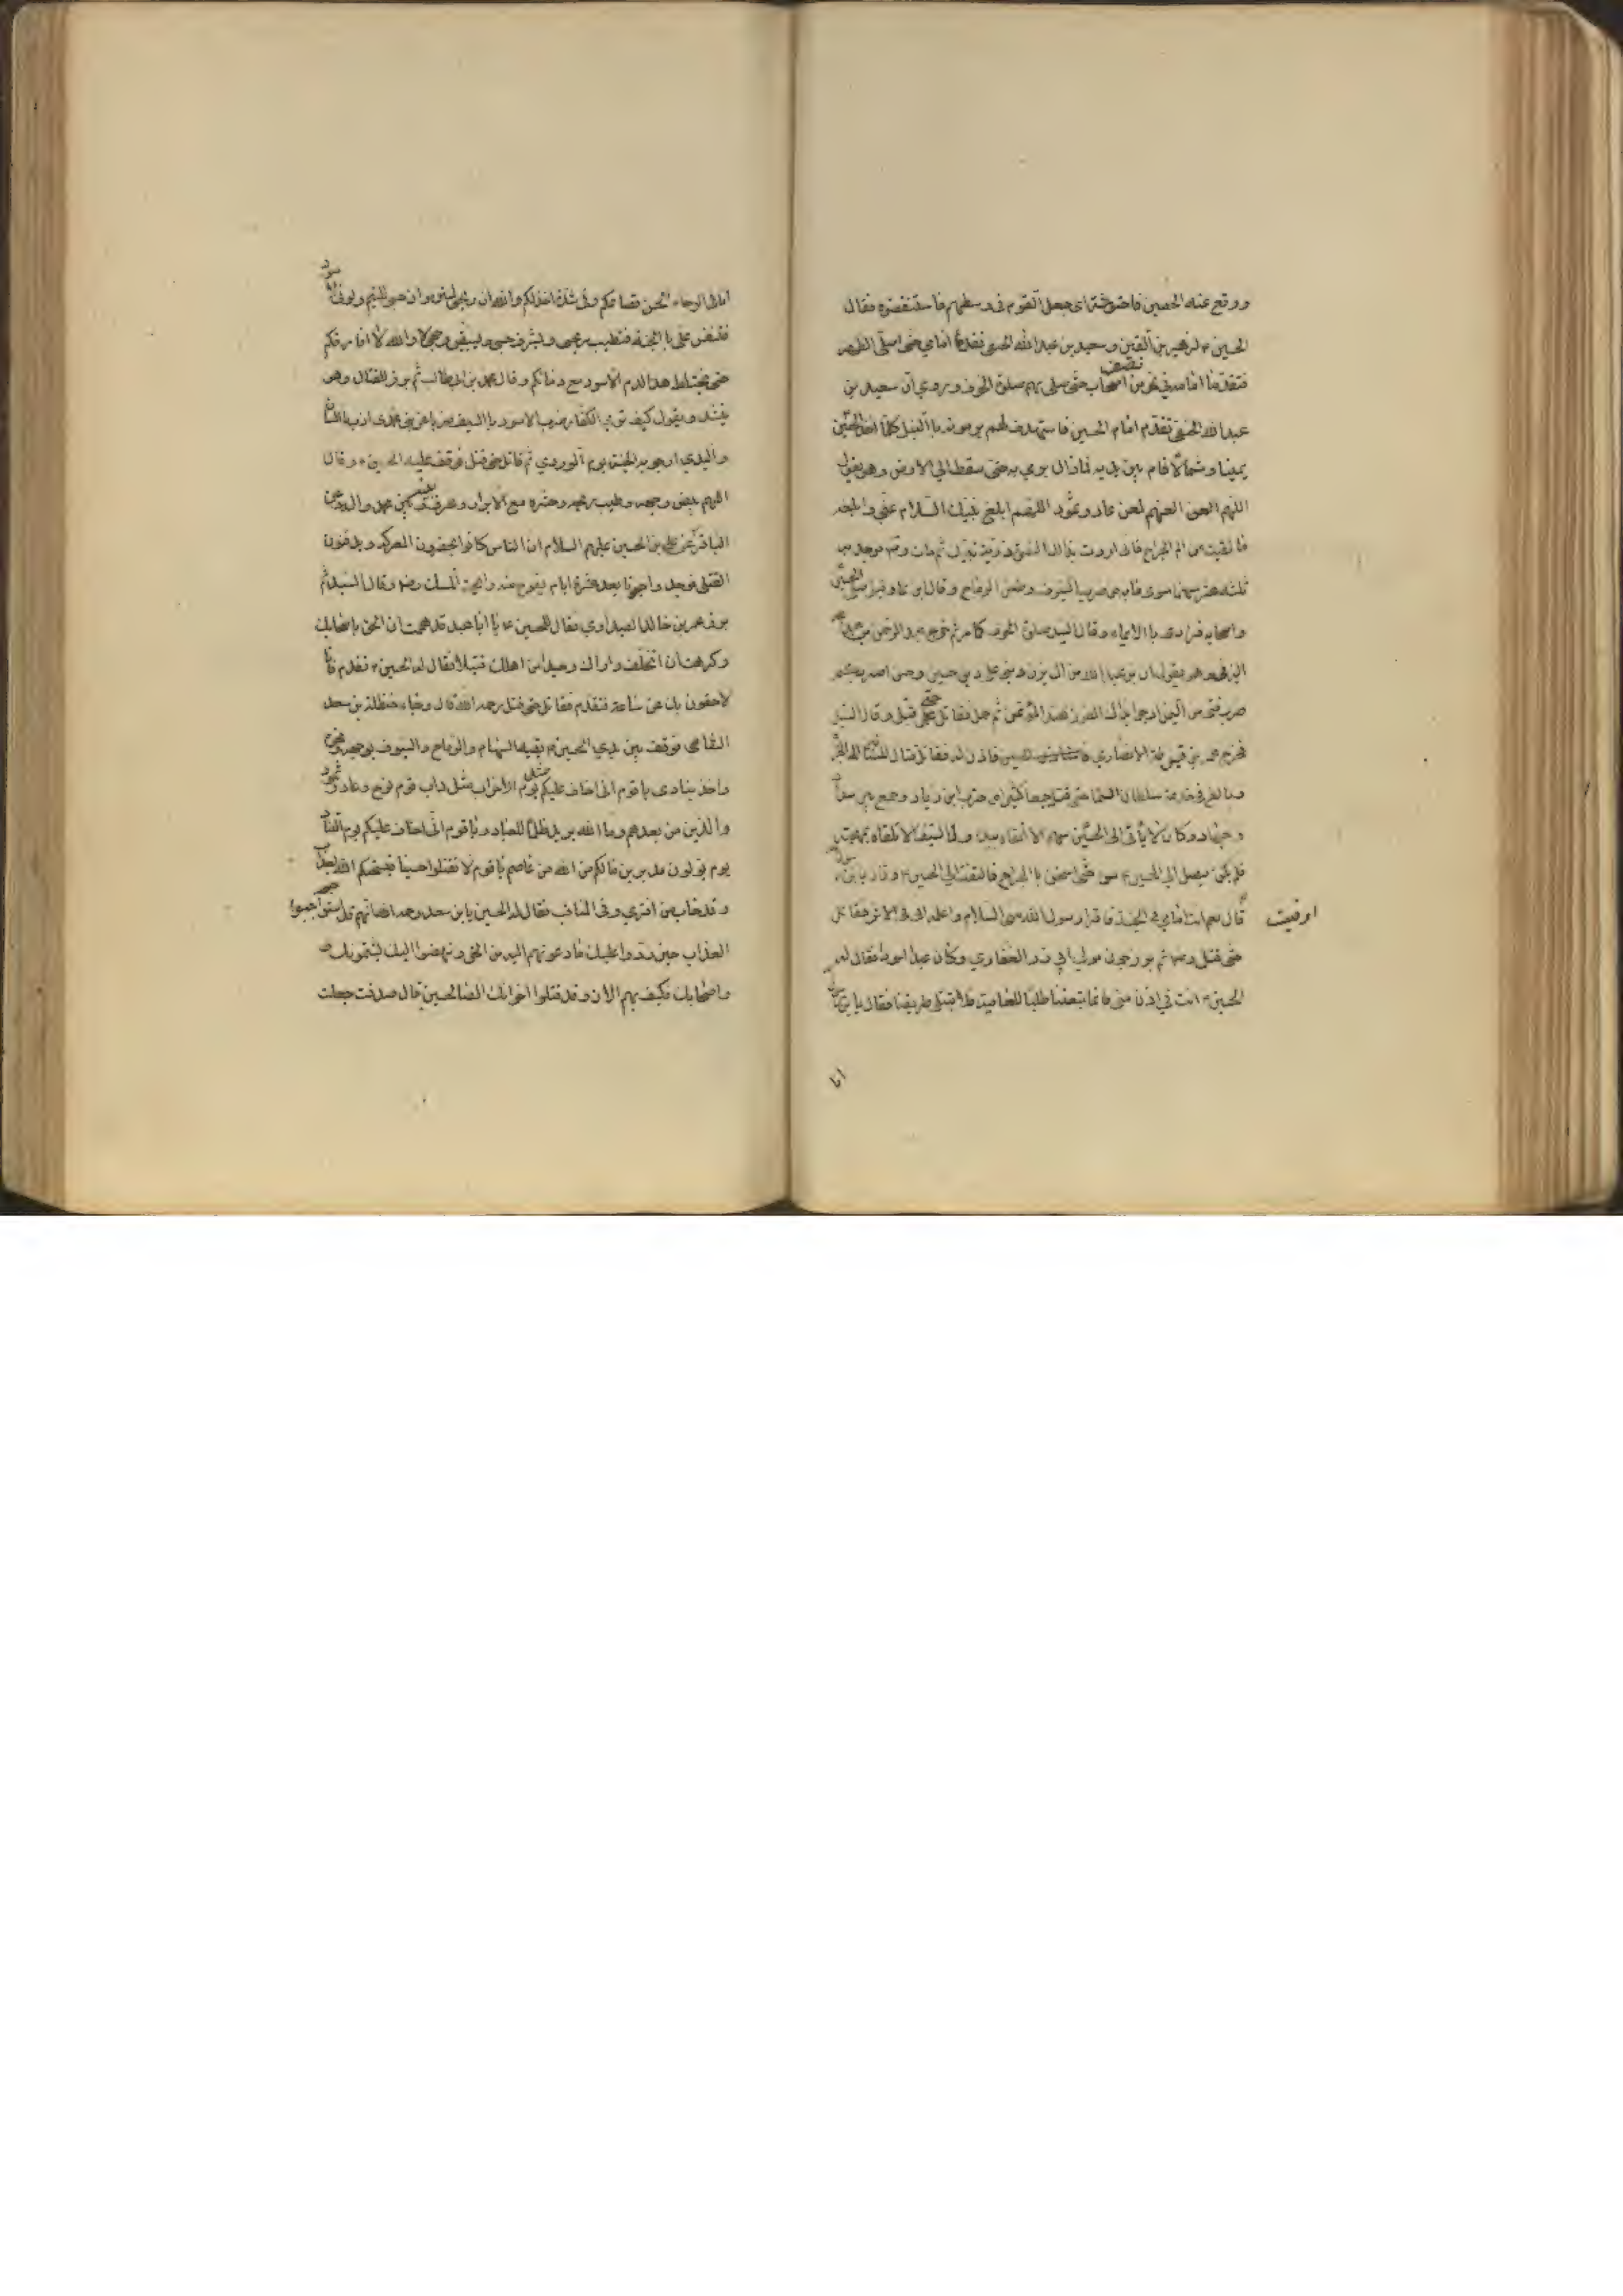 ووقع عنه الحصين فاحتوشته اى جعل القوم فى وسطهم فاستنقذوه فقال
الحسين ء لزهير بن القين وسعيد بن عبد الله الحنفى تقدما امامي حتى اصلى الظهر
فتقدما امامه في نحو من نصف اصحابه حتى صلى بهم صلوة الخوف وروي ان سعيد بن
عبد الله الحنفى تقدم امام الحسين فاستهدف لهم يرمونه باالنبل كلما اخذ الحسين
يمينا وشمالا قام بين يديه فمازال يرمي به حتى سقط الى الارض وهو يقول
اللهم العن العنهم لعن عاد وثمود اللهم ابلغ نبيك السلام عني وابلغه
ما لقيت من الم الجراح فانى اردت بذالك نصرة ذرية نبيك ثم مات رضه فوجد به
ثلثة عشر سهما سوى مابه من ضرب السيوف وطعن الرماح وقال ابن نما وقيل صلى الحسين
واصحابه فرادى باالايماء وقال السيد صلوة الخوف كما مر ثم خرج عبد الرحمن بن عبد الله
اليزنى وهو يقول انا بن عبد الله من ال يزن دينى على دين حسين وحسن اضربكم
ضرب فتى من اليمن ارجوا بذاك الفوز عند المؤتمن ثم حمل فقاتل حتى قتل وقال السيد
فخرج عمرو بن قرظة الانصاري فاستاذن الحسين فاذن له فقاتل قتال المشتاق الى الجزاء
وبالغ في خدمة سلطان السماء حتى قتل جمعا كثيرا من حزب ابن زياد وجمع بين سداد
وجهاد وكان لا يأتى الى الحسين سهم الا اتقاه بيده ولا سيف الا تلقاه بمهجته
فلم يكن يصل الى الحسين ء سوء حتى اثخن باالجراح فالتفت الى الحسين ء وقال يابن رسول الله
اوفيت
قال نعم انت امامي في الجنة فاقرا رسول الله منى السلام واعلمه انى فى الاثر فقاتل
حتى قتل رضه ثم برز جون مولى ابي ذر الغفاري وكان عبدا اسودا فقال له
الحسين ء انت في اذن منى فانما تبعتنا طلبا للعافية فلا تبتل بطريقنا فقال يابن رسول الله
انا
انا فى الرخاء الحس قصاعكم وفى الشدة اخذلكم والله ان ريحى لنتن وان حسبى للئيم ولونى لاسود
فتنفس على باالجنة فتطيب ريحى ويشرف حسبى ويبيض وجهى لا والله لا افارقكم
حتى يختلط هذا الدم الاسود مع دمائكم وقال محمد بن ابيطالب ثم برز للقتال وهو
ينشد ويقول كيف ترى الكفار ضرب الاسود باالسيف ضربا عن بنى محمد اذب عنهم باللسان
واليدي ارجو به الجنة يوم الوردي ثم قاتل حتى قتل فوقف عليه الحسين ء وقال
اللهم بيض وجهه وطيب ريحه واحشره مع الابرار وعرف بينه وبين محمد وال محمد وروي عن
الباقر عن علي بن الحسين عليهم السلام ان الناس كانوا يحضرون المعركة ويدفنون
القتلى فوجدوا جونا بعد عشرة ايام يفوح منه رائحة المسك رضه وقال السيد ثم
برز عمر بن خالد الصيداوي فقال للحسين ء يا ابا عبد الله قد هممت ان الحق باصحابك
وكرهت ان اتخلف واراك وحيدا من اهلك قتيلا فقال له الحسين ء تقدم فانا
لاحقون بك عن ساعة فتقدم فقاتل حتى قتل رحمه الله قال وجاء حنظلة بن سعد
الشامى فوقف بين يدي الحسين ء يقيه السهام والرماح والسيوف بوجهه ونحره
واخذ ينادى يا قوم انى اخاف عليكم مثل يوم الاحزاب مثل داب قوم نوح وعاد وثمود
والذين من بعدهم وما الله يريد ظلما للعباد ويا قوم انى اخاف عليكم يوم التناد
يوم تولون مدبرين مالكم من الله من عاصم يا قوم لا تقتلوا حسينا فيسحتكم الله بعذاب
وقد خاب من افترى وفى المناقب فقال له الحسين يابن سعد رحمك الله انهم قد استوجبوا
العذاب حين ردوا عليك مادعوتهم اليه من الحق ونهضوا اليك يشتمونك
واصحابك فكيف بهم الان وقد قتلوا اخوانك الصالحين قال صدقت جعلت